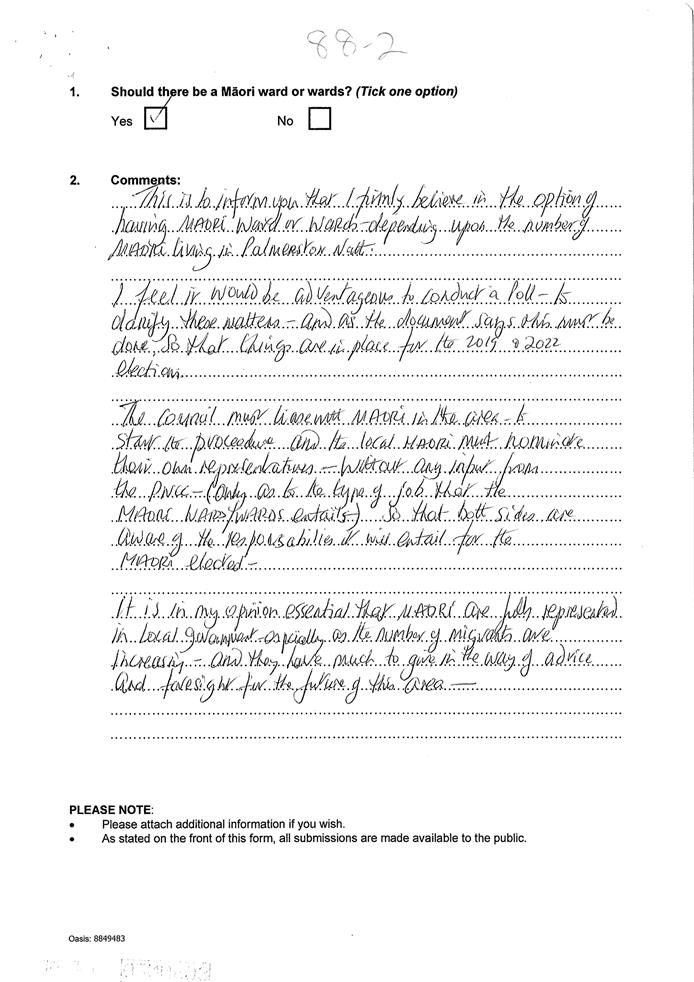 88-2
1. Should there be a Māori ward or wards? (Tick one option)
Yes No
2. Comments:
This is to inform you that I firmly believe in the option of
having MAORI Ward or Wards - depending upon the number of
MAORI living in Palmerston Nth.
I feel it would be adventageous to conduct a Poll - to
clarify these matters - and as the document says this must be
done, so that things are in place for the 2019 & 2022
elections.
The Council must liase with MAORI in the area - to
start the proceedure and the local MAORI must nominate
their own representatives - without any input from
the PNCC - (only as to the type of job that the
MAORI WARD/WARDS entails-) So that both sides are
aware of the responsabilies it will entail for the
MAORI elected -
It is in my opinion essential that MAORI are fully represented
in Local government - especially as the number of migrants are
increasing - and they have much to give in the way of advice
and foresight for the future of this area -
PLEASE NOTE:
• Please attach additional information if you wish.
• As stated on the front of this form, all submissions are made available to the public.
Oasis: 8849483